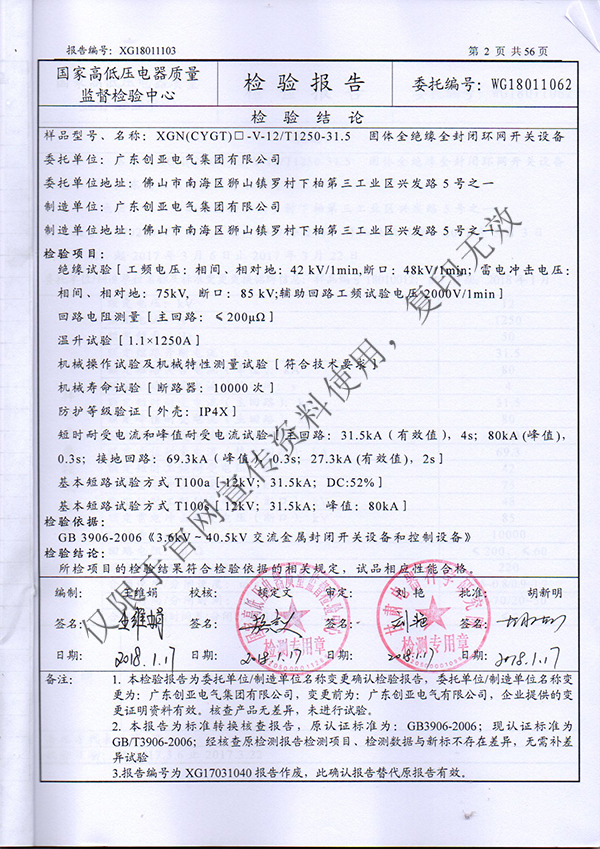 报告编号：XG18011103
第 2 页 共56页
国家高低压电器质量
监督检验中心
检验报告
委托编号：WG18011062
检 验 结 论
样品型号、名称：XGN(CYGT)□-V-12/T1250-31.5 固体全绝缘全封闭环网开关设备
委托单位：广东创亚电气集团有限公司
委托单位地址：佛山市南海区狮山镇罗村下柏第三工业区兴发路 5 号之一
制造单位：广东创亚电气集团有限公司
制造单位地址：佛山市南海区狮山镇罗村下柏第三工业区兴发路 5 号之一
检验项目：
绝缘试验［工频电压：相间、相对地：42 kV/1min,断口：48kV/1min; 雷电冲击电压：
相间、相对地：75kV, 断口：85 kV;辅助回路工频试验电压 2000V/1min］
回路电阻测量［主回路：≤200μΩ］
温升试验［1.1×1250A］
机械操作试验及机械特性测量试验［符合技术要求］
机械寿命试验［断路器：10000 次］
防护等级验证［外壳：IP4X］
短时耐受电流和峰值耐受电流试验［主回路：31.5kA（有效值），4s；80kA (峰值)，
0.3s；接地回路：69.3kA（峰值），0.3s；27.3kA (有效值)，2s］
基本短路试验方式 T100a［12kV；31.5kA；DC:52%］
基本短路试验方式 T100s［12kV；31.5kA；峰值：80kA］
检验依据：
GB 3906-2006《3.6kV～40.5kV 交流金属封闭开关设备和控制设备》
检验结论：
所检项目的检验结果符合检验依据的相关规定，试品相应性能合格。
编制：王维娟 校核：胡定文 审定：刘 艳 批准：胡新明
签名：王维娟 签名： 签名：刘艳 签名：
日期：2018.1.17 日期：2018.1.17 日期：2018.1.17 日期：2018.1.17
检测专用章
检测专用章
备注：
1. 本检验报告为委托单位/制造单位名称变更确认检验报告，委托单位/制造单位名称变
更为：广东创亚电气集团有限公司，变更前为：广东创亚电气有限公司，企业提供的变
更证明资料有效。核查产品无差异，未进行试验。
2. 本报告为标准转换核查报告，原认证标准为：GB3906-2006；现认证标准为
GB/T3906-2006；经核查原检测报告检测项目、检测数据与新标不存在差异，无需补差
异试验
3.报告编号为 XG17031040 报告作废，此确认报告替代原报告有效。
仅限于官网宣传资料使用，复印无效